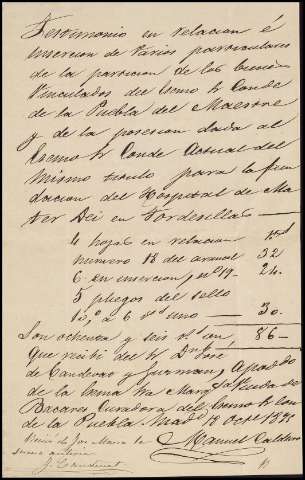 Testimonio en relacion é
insercion de varios particulares
de la particion de los bienes
Vinculados del Excmo Sr Conde
de la Puebla del Maestre
y de la posesion dada al
Excmo Sr Conde Actual del
mismo titulo para la fun
dacion del Hospital de Ma
ter Dei en Tordesillas
4 hojas en relacion
numero 18 del arancel 32
6 en insercion, nº 19. 24.
5 pliegos del sello
10,º a 6 uno 30.
Son ochenta y seis rs. vn 86
que recibí del Sr Dn José
de Candevat y Guzman, Apodo
de la Excma Sra Marqsa Viuda de
Bacares Curadora del Excmo Sr Con
de la Puebla. Madd 18 Octe
Recibi de Jose Maria la Manuel Caldeiro
suma anterior
J. Candevat